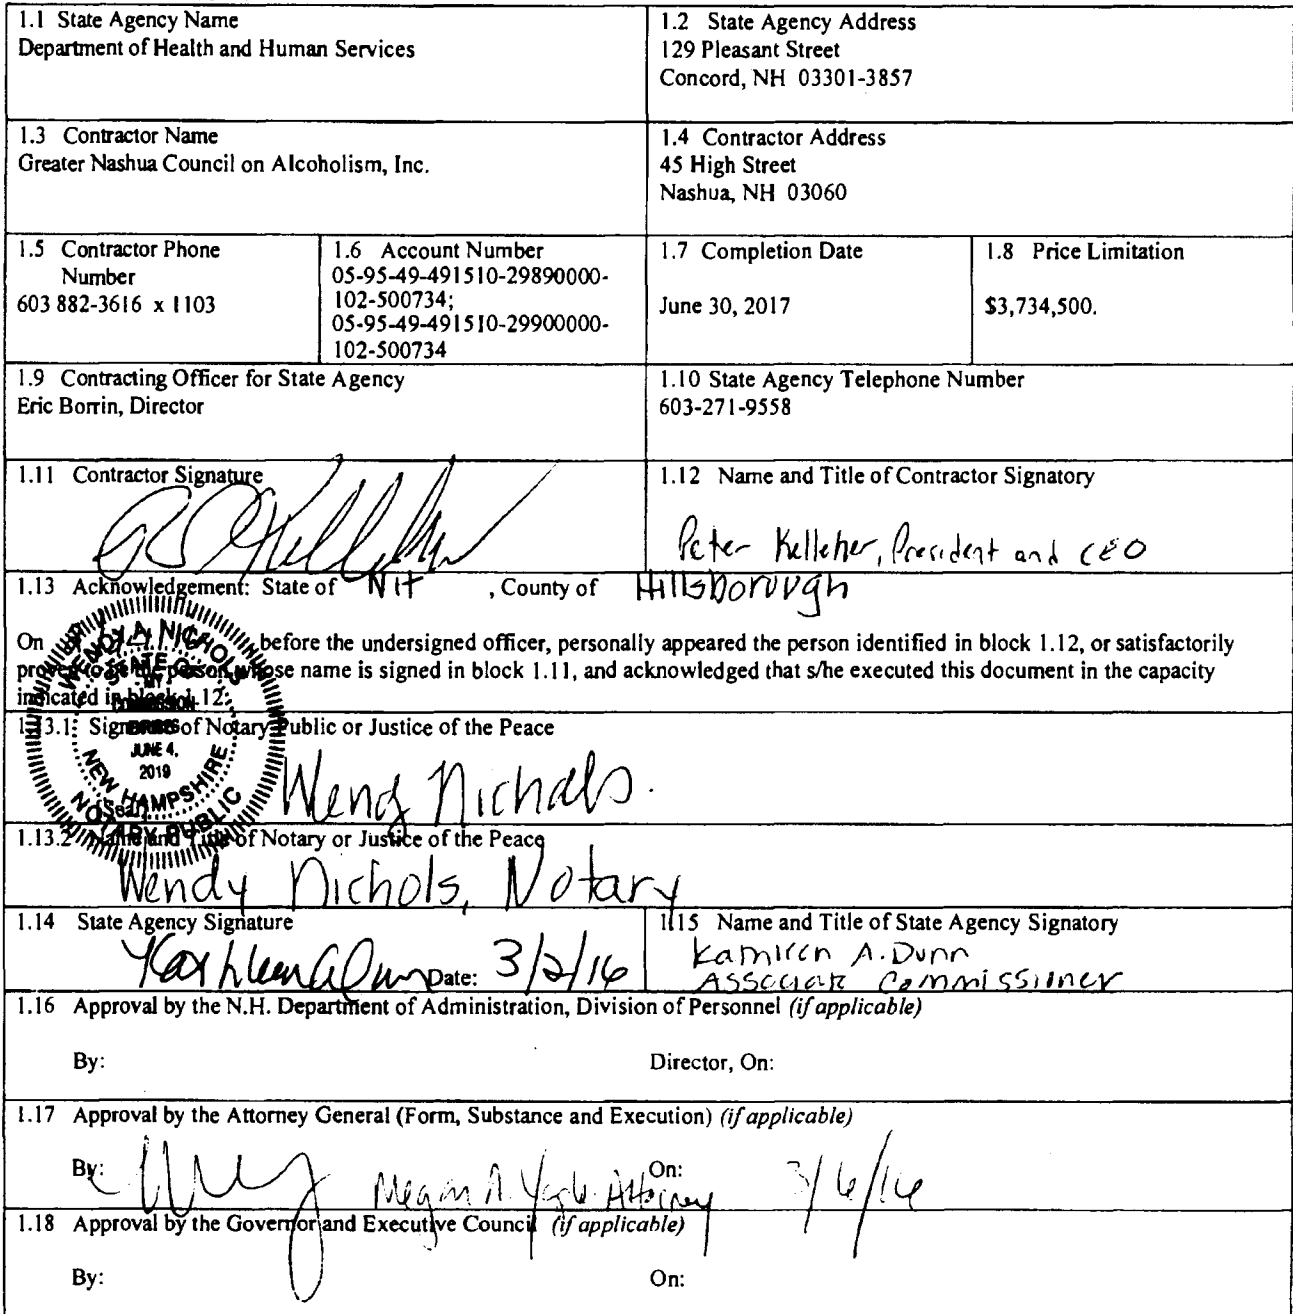 1.1 State Agency Name
Department of Health and Human Services
1.2 State Agency Address
129 Pleasant Street
Concord, NH 03301-3857
1.3 Contractor Name
Greater Nashua Council on Alcoholism, Inc.
1.4 Contractor Address
45 High Street
Nashua, NH 03060
1.5 Contractor Phone
Number
603 882-3616 x 1103
1.6 Account Number
05-95-49-491510-29890000-
102-500734;
05-95-49-491510-29900000-
102-500734
1.7 Completion Date
June 30, 2017
1.8 Price Limitation
$3,734,500.
1.9 Contracting Officer for State Agency
Eric Borrin, Director
1.10 State Agency Telephone Number
603-271-9558
1.11 Contractor Signature
1.12 Name and Title of Contractor Signatory
Peter Kelleher, President and CEO
1.13 Acknowledgement: State of NH , County of Hillsborough
On before the undersigned officer, personally appeared the person identified in block 1.12, or satisfactorily
proven to be the person whose name is signed in block 1.11, and acknowledged that s/he executed this document in the capacity
indicated in block 1.12.
1.13.1 Signature of Notary Public or Justice of the Peace
WENDY A. NICHOLS
STATE OF
MY
COMMISSION
EXPIRES
JUNE 4,
2019
NEW HAMPSHIRE
NOTARY PUBLIC
[Seal]
Wendy Nichols
1.13.2 Name and Title of Notary or Justice of the Peace
Wendy Nichols, Notary
1.14 State Agency Signature
Kathleen A Dunn Date: 3/2/16
1.15 Name and Title of State Agency Signatory
Kathleen A. Dunn
Associate Commissioner
1.16 Approval by the N.H. Department of Administration, Division of Personnel (if applicable)
By: Director, On:
1.17 Approval by the Attorney General (Form, Substance and Execution) (if applicable)
By: Megan A. Attorney On: 3/6/16
1.18 Approval by the Governor and Executive Council (if applicable)
By: On: